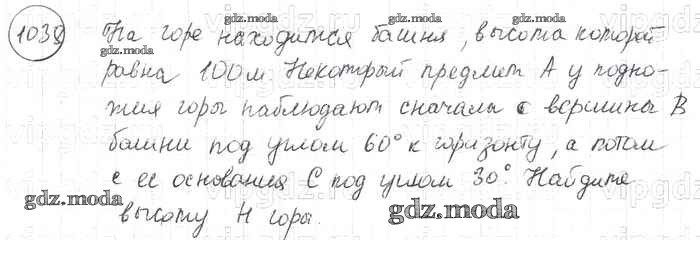 1038 На горе находится башня, высота которой
равна 100м. Некоторый предмет А у подно-
жия горы наблюдают сначала с вершины В
башни под углом 60° к горизонту, а потом
с ее основания С под углом 30°. Найдите
высоту Н горы.
gdz.moda
gdz.moda
gdz.moda
gdz.moda
gdz.moda
gdz.moda
gdz.moda
gdz.moda